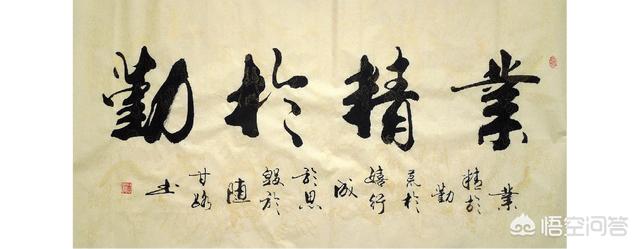 業精於勤
業
精於
勤
荒於
嬉行
成
於思
毀於
隨
甘
书
悟空问答